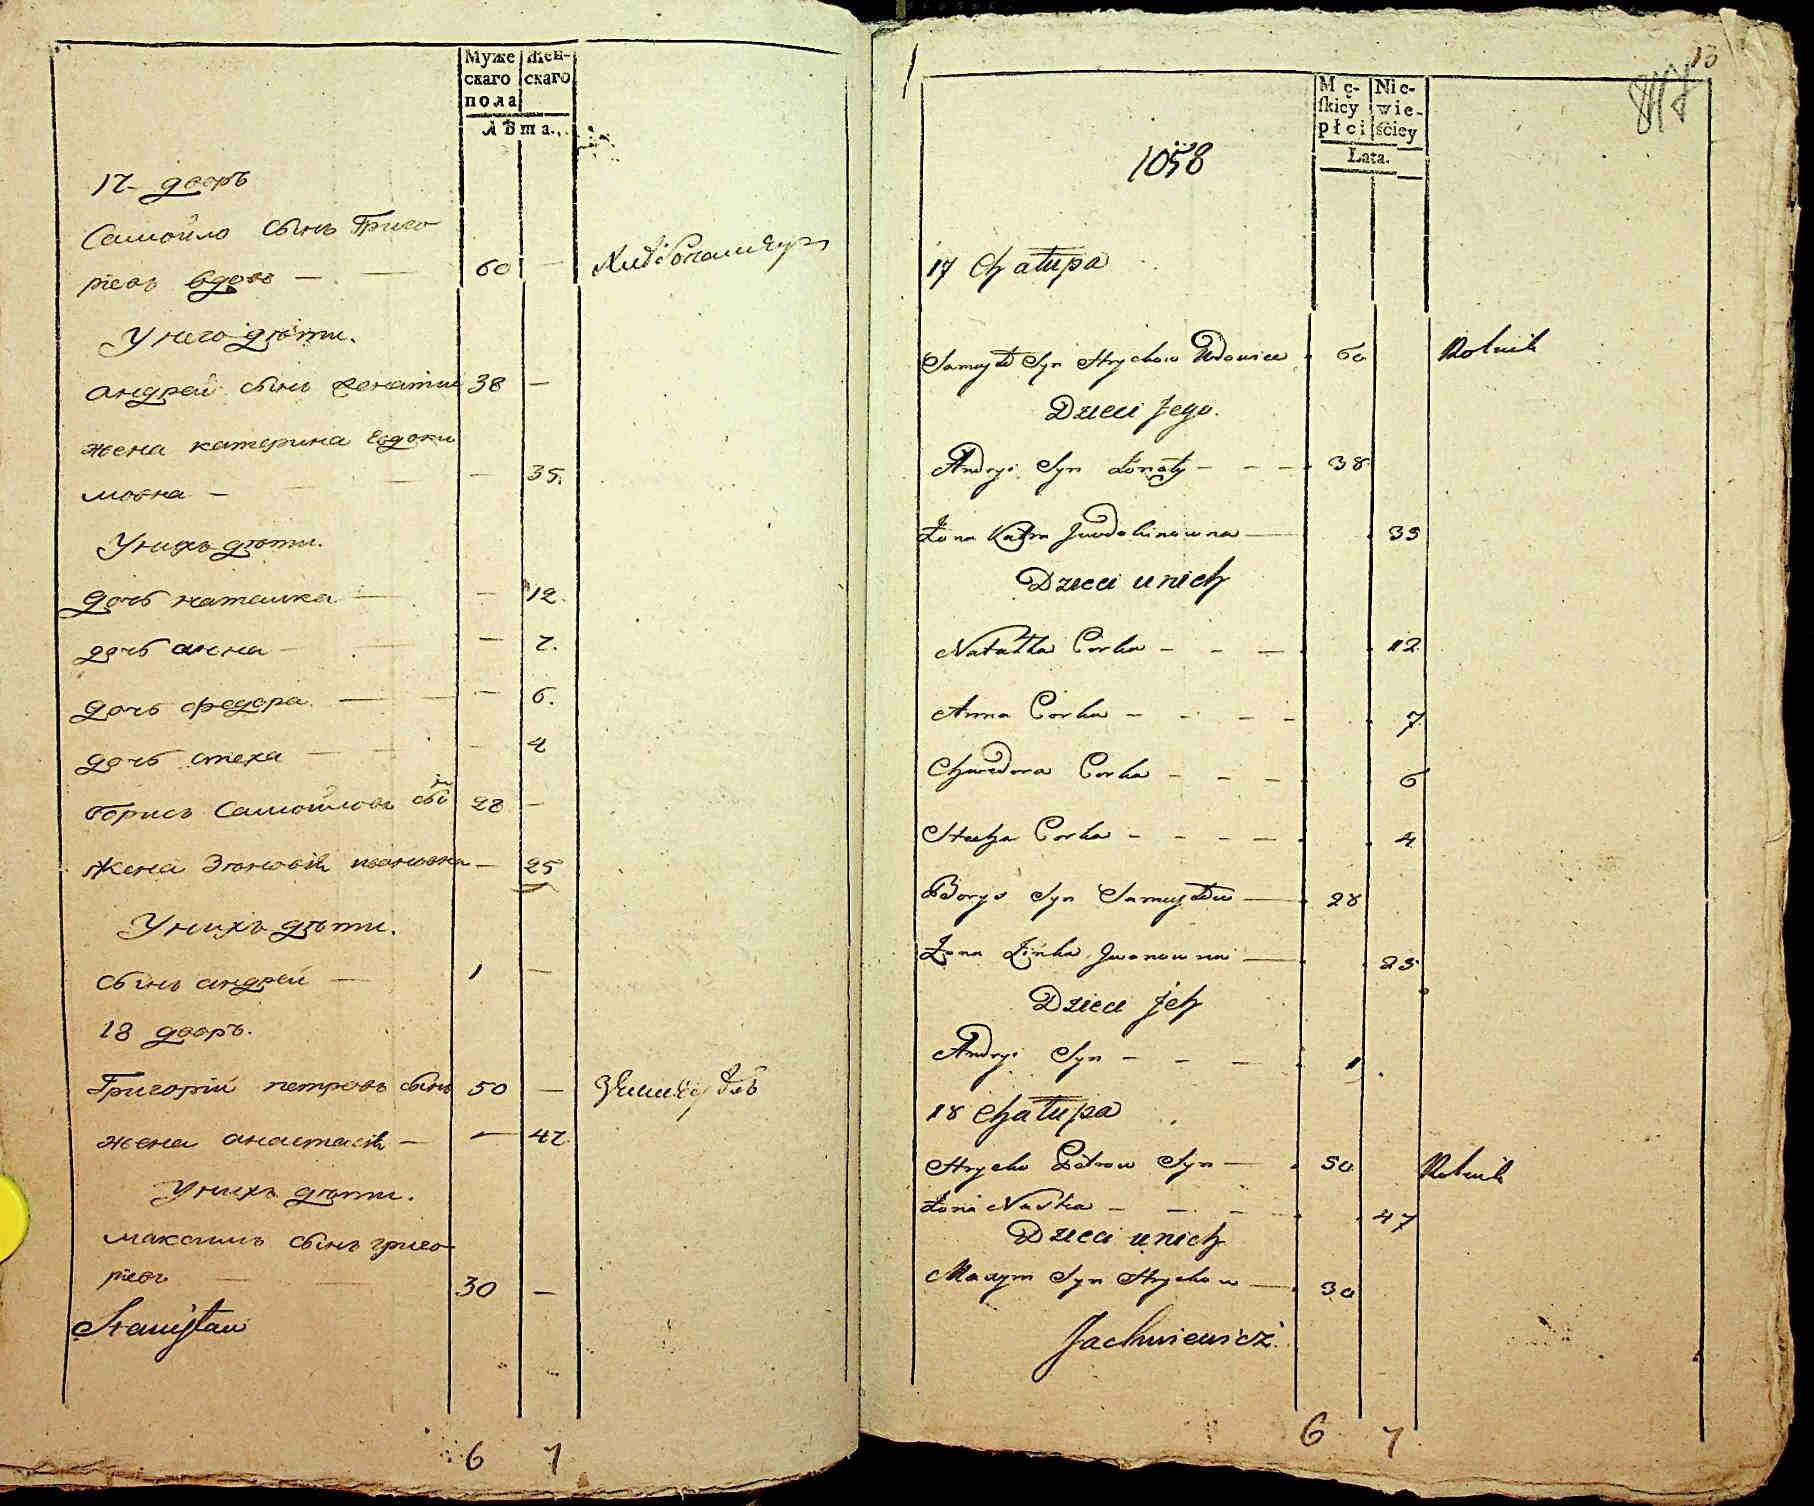 Муже
скаго
пола
Жен-
скаго
лѣта.
17 дворъ
Самойло сынъ Григо
рiевъ вдовъ — — 60 —
У него дѣти.
андрей сынъ женатый 38 —
жена катерина Евдоки
мовна — — 35.
У нихъ дѣти.
дочь наташка — — 12.
дочь анна — — 7.
дочь федора — — 6.
дочь стеха — — 4
борисъ Самойловъ сынъ 28 —
Жена Зѣновiя ивановна — 25
У нихъ дѣти.
сынъ андрей — 1 —
18 дворъ.
Григорiй петровъ сынъ 50 —
жена анастасiя — — 47
У нихъ дѣти.
максимъ сынъ григо
рiевъ — 30 —
Stanisław
6 7
13
Mę-
ſkiey
płci
Nie-
wie-
ściey
Lata.
1058
17 Chałupa
Samuyło Syn Hrychow Wdowiec 60 Rolnik
Dzieci Jego.
Andryi Syn Żonaty - - - 38
Żona Katra Jwdokimowna — 35
Dzieci u nich
Natałka Corka - - — 12
Anna Corka - - - - 7
Chwedora Corka - - - 6
Stecha Corka - - - - 4
Borys Syn Samuyłow — 28
Żona Zinka Jwanowna — 25
Dzieci Jch
Andryi Syn - - — 1
18 Chałupa
Hrycko Petrow Syn — 50 Rolnik
Żona Nastia - - - 47
Dzieci u nich
Maxym Syn Hrychow — 30
Jachniewicz
6 7